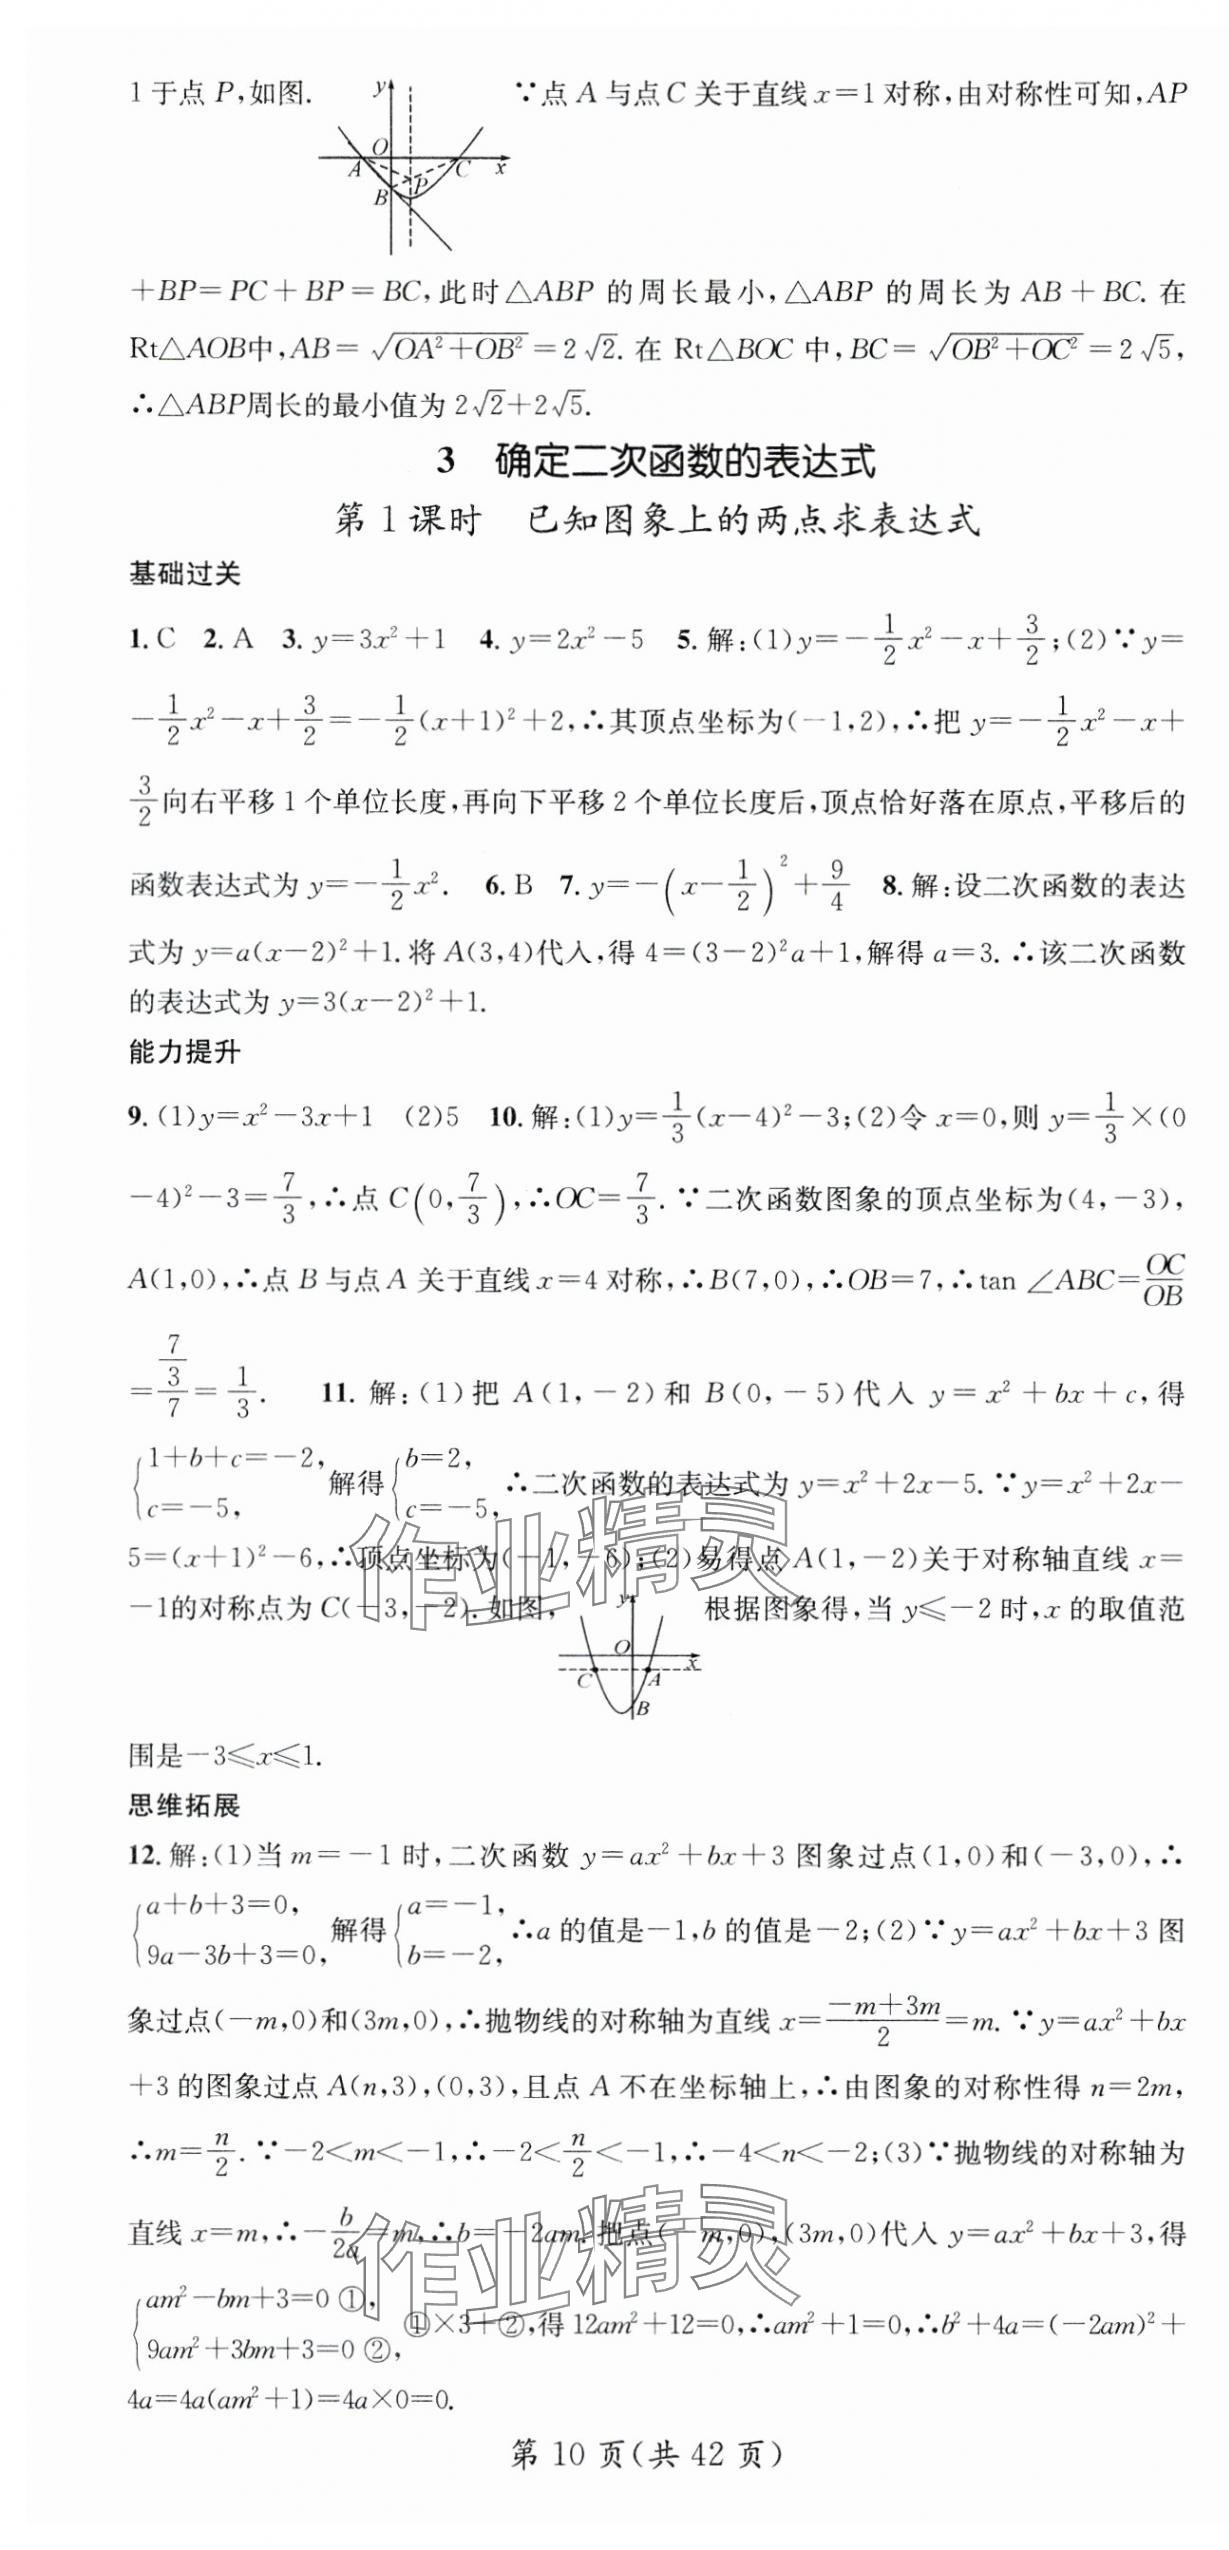 1于点 P,如图.
∵点 A 与点 C 关于直线 x=1 对称,由对称性可知,AP
y
O
A
C
x
P
B
+BP=PC+BP=BC,此时△ABP 的周长最小,△ABP 的周长为 AB+BC. 在
Rt△AOB中,AB=√(OA²+OB²)=2√2. 在 Rt△BOC 中,BC=√(OB²+OC²)=2√5,
∴△ABP周长的最小值为 2√2+2√5.
3 确定二次函数的表达式
第1课时 已知图象上的两点求表达式
基础过关
1. C 2. A 3. y=3x²+1 4. y=2x²-5 5. 解:(1)y=-1/2x²-x+3/2;(2)∵y=
-1/2x²-x+3/2=-1/2(x+1)²+2,∴其顶点坐标为(-1,2),∴把 y=-1/2x²-x+
3/2向右平移 1 个单位长度,再向下平移 2 个单位长度后,顶点恰好落在原点,平移后的
函数表达式为 y=-1/2x². 6. B 7. y=-(x-1/2)²+9/4 8. 解:设二次函数的表达
式为 y=a(x-2)²+1. 将 A(3,4)代入,得 4=(3-2)²a+1,解得 a=3. ∴该二次函数
的表达式为 y=3(x-2)²+1.
能力提升
9. (1)y=x²-3x+1 (2)5 10. 解:(1)y=1/3(x-4)²-3;(2)令 x=0,则 y=1/3×(0
-4)²-3=7/3,∴点 C(0,7/3),∴OC=7/3. ∵二次函数图象的顶点坐标为(4,-3),
A(1,0),∴点 B 与点 A 关于直线 x=4 对称,∴B(7,0),∴OB=7,∴tan ∠ABC=OC/OB
=(7/3)/7=1/3. 11. 解:(1)把 A(1,-2)和 B(0,-5)代入 y=x²+bx+c,得
{1+b+c=-2, c=-5, 解得{b=2, c=-5, ∴二次函数的表达式为 y=x²+2x-5. ∵y=x²+2x-
5=(x+1)²-6,∴顶点坐标为(-1,-6);(2)易得点 A(1,-2)关于对称轴直线 x=
-1的对称点为 C(-3,-2). 如图,
根据图象得,当 y≤-2 时,x 的取值范
y
O
x
C
A
B
围是-3≤x≤1.
思维拓展
12. 解:(1)当 m=-1 时,二次函数 y=ax²+bx+3 图象过点(1,0)和(-3,0),∴
{a+b+3=0, 9a-3b+3=0, 解得{a=-1, b=-2, ∴a 的值是-1,b 的值是-2;(2)∵y=ax²+bx+3 图
象过点(-m,0)和(3m,0),∴抛物线的对称轴为直线 x=(-m+3m)/2=m. ∵y=ax²+bx
+3 的图象过点 A(n,3),(0,3),且点 A 不在坐标轴上,∴由图象的对称性得 n=2m,
∴m=n/2. ∵-2<m<-1,∴-2<n/2<-1,∴-4<n<-2;(3)∵抛物线的对称轴为
直线 x=m,∴-b/2a=m,∴b=-2am. 把点(-m,0),(3m,0)代入 y=ax²+bx+3,得
{am²-bm+3=0 ①, 9am²+3bm+3=0 ②, ①×3+②,得 12am²+12=0,∴am²+1=0,∴b²+4a=(-2am)²+
4a=4a(am²+1)=4a×0=0.
第 10 页(共 42 页)
作业精灵
作业精灵